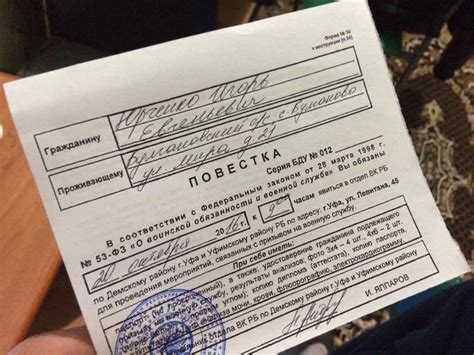 Форма № 30
к инструкции (п.34)
Гражданину Юрченко Игорь
Евгеньевич
Проживающему
ул. Мира д 21
ПОВЕСТКА
Серия БДУ № 012
В соответствии с Федеральным законом от 28 марта 1998 г.
№ 53-ФЗ «О воинской обязанности и военной службе» Вы обязаны
20 октября 2016 г. к часам явиться в отдел ВК РБ
по Демскому району г.Уфа и Уфимскому району РБ по адресу: г.Уфа, ул. Левитана, 45
для проведения мероприятий, связанных с призывом на военную службу.
При себе иметь:
а также удостоверение гражданина подлежащего
службу, результаты анализов; фото: 3х4 – 4 шт., 4х6 – 2 шт.
копию диплома (аттестата), копию паспорта,
мочи, крови, флюорографию, электрокардиограмму
отдела ВК РБ по Демскому району г.Уфа и Уфимскому району
И. ЯППАРОВ